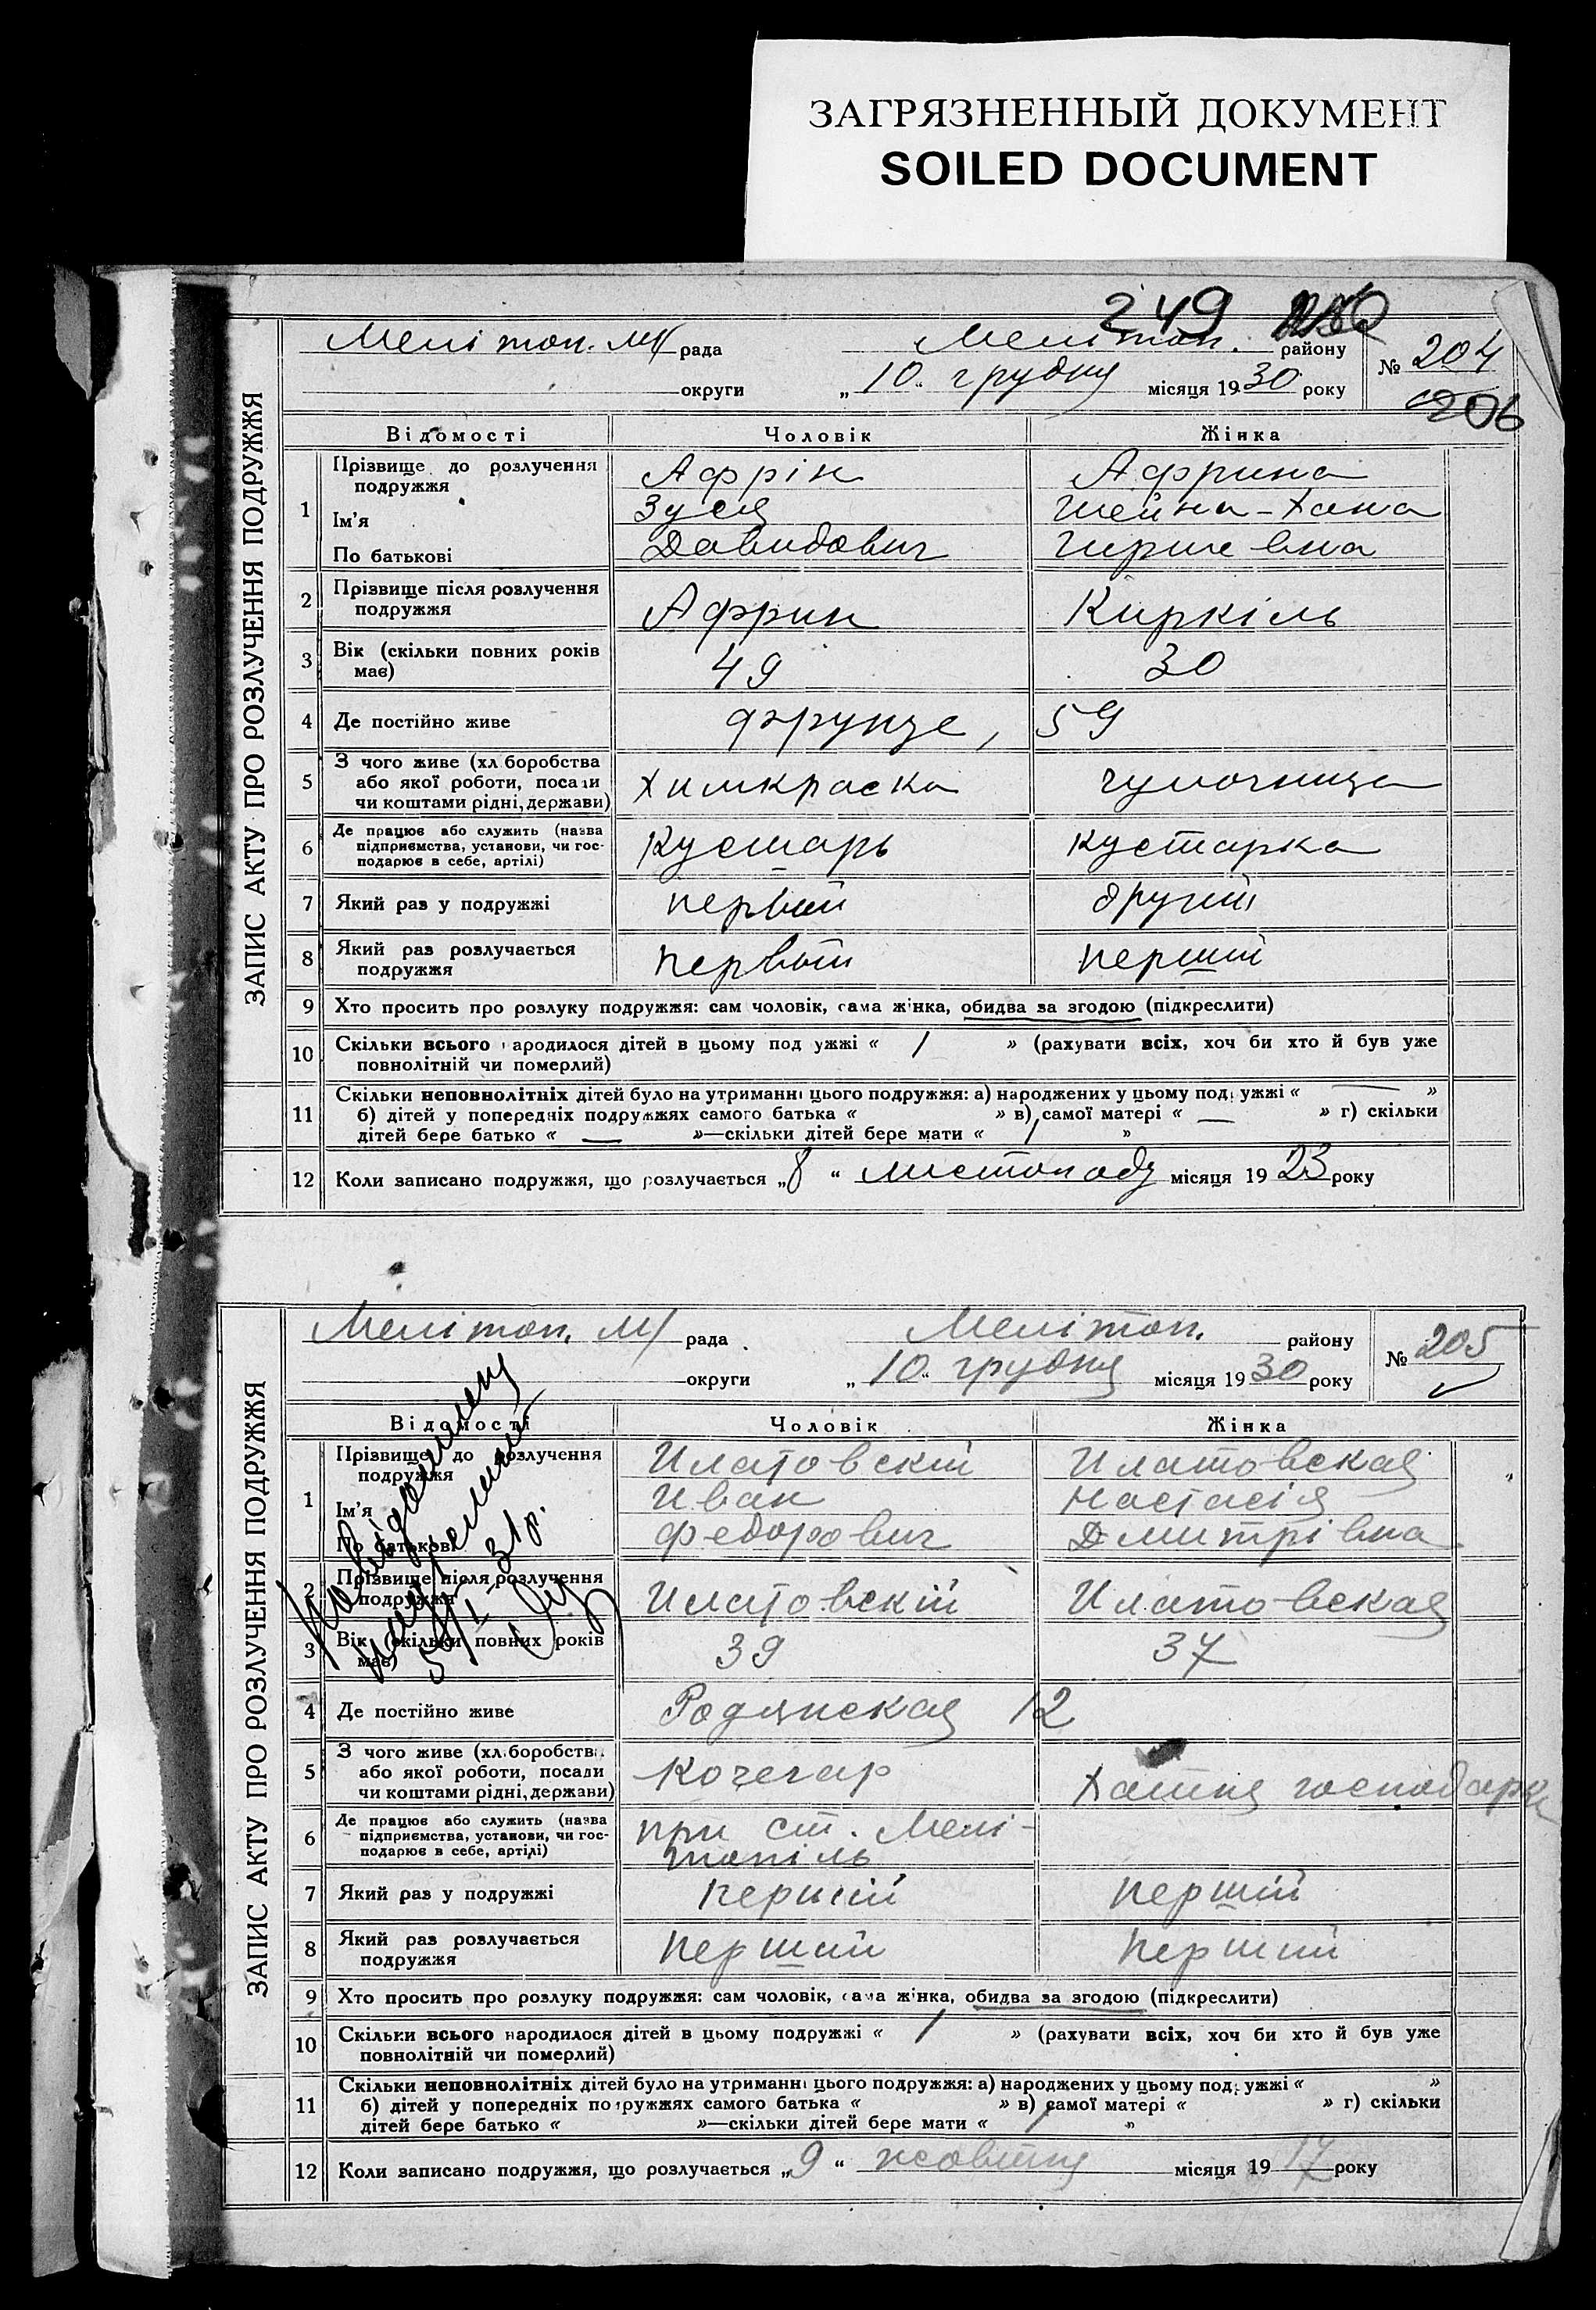 ЗАГРЯЗНЕННЫЙ ДОКУМЕНТ
SOILED DOCUMENT
249
ЗАПИС АКТУ ПРО РОЗЛУЧЕННЯ ПОДРУЖЖЯ
Мелітоп. м/ рада Мелітоп. району № 204
округи „ 10 “ грудня місяця 1930 року 206
Відомості Чоловік Жінка
1 Прізвище до розлучення подружжя Афрін Африна
Ім'я Зуся Шейна-Хана
По батькові Давидович Гиршевна
2 Прізвище після розлучення подружжя Африн Киркіль
3 Вік (скільки повних років має) 49 30
4 Де постійно живе Фрунзе, 59
5 З чого живе (хліборобства або якої роботи, посади чи коштами рідні, держави) Химкраска чулочница
6 Де працює або служить (назва підприємства, установи, чи господарює в себе, артілі) Кустарь кустарка
7 Який раз у подружжі первий другий
8 Який раз розлучається подружжя первый перший
9 Хто просить про розлуку подружжя: сам чоловік, сама жінка, обидва за згодою (підкреслити)
10 Скільки всього народилося дітей в цьому подружжі « 1 » (рахувати всіх, хоч би хто й був уже
повнолітній чи померлий)
11 Скільки неповнолітніх дітей було на утриманні цього подружжя: а) народжених у цьому подружжі « — »
б) дітей у попередніх подружжях самого батька « » в) самої матері « — » г) скільки
дітей бере батько « — »—скільки дітей бере мати « 1 »
12 Коли записано подружжя, що розлучається „ 8 “ листопаду місяця 1923 року
ЗАПИС АКТУ ПРО РОЗЛУЧЕННЯ ПОДРУЖЖЯ
Мелітоп. м/ рада Мелітоп. району № 205
округи „ 10 “ грудня місяця 1930 року
Відомості Чоловік Жінка
1 Прізвище до розлучення подружжя Илатовскій Илатовская
Ім'я Иван Настасія
По батькові Федорович Дмитрівна
2 Прізвище після розлучення подружжя Илатовскій Илатовская
3 Вік (скільки повних років має) 39 37
31р.
4 Де постійно живе Родянская 12
5 З чого живе (хліборобства або якої роботи, посади чи коштами рідні, держави) Кочегар Хатня господарка
6 Де працює або служить (назва підприємства, установи, чи господарює в себе, артілі) при ст. Мелі-
топіль
7 Який раз у подружжі перший перший
8 Який раз розлучається подружжя перший перший
9 Хто просить про розлуку подружжя: сам чоловік, сама жінка, обидва за згодою (підкреслити)
10 Скільки всього народилося дітей в цьому подружжі « 1 » (рахувати всіх, хоч би хто й був уже
повнолітній чи померлий)
11 Скільки неповнолітніх дітей було на утриманні цього подружжя: а) народжених у цьому подружжі « »
б) дітей у попередніх подружжях самого батька « » в) самої матері « » г) скільки
дітей бере батько « »—скільки дітей бере мати « 1 »
12 Коли записано подружжя, що розлучається „ 9 “ жовтня місяця 1917 року